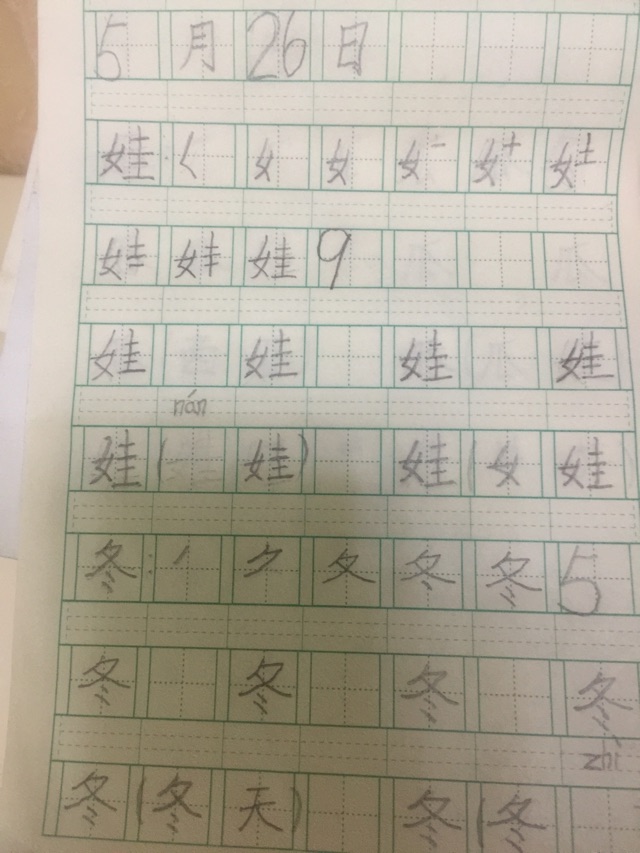 5月26日
娃:𡿨 女 女 女一 女十 女土
娃 娃 娃 9
娃 娃 娃 娃
nán
娃( 娃) 娃(女娃
冬:丿 ク 夂 冬 冬 5
冬 冬 冬 冬
zhì
冬(冬天) 冬(冬